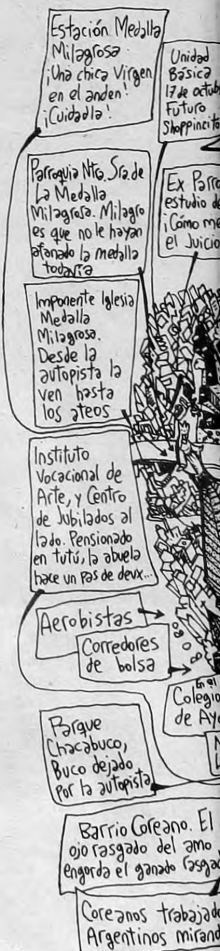 Estación Medalla
Milagrosa.
¡Una chica Virgen
en el anden!
¡Cuidadla!
Unidad
Básica
17 de octub
Futuro
Shoppincito
Parroquia Ntra. Sra. de
La Medalla
Milagrosa. Milagro
es que no le hayan
afanado la medalla
todavía
Ex Parro
estudio de
¡Cómo me
el Juicio
Imponente Iglesia
Medalla
Milagrosa.
Desde la
autopista la
ven hasta
los ateos
Instituto
Vocacional de
Arte, y Centro
de Jubilados al
lado. Pensionado
en tutú, la abuela
hace un pas de deux...
Aerobistas
Corredores
de bolsa
En el
Colegio
de Ayo
Parque
Chacabuco,
Buco dejado
por la autopista
Barrio Coreano. El
ojo rasgado del amo
engorda el ganado rasgad
Coreanos trabajado
Argentinos mirand